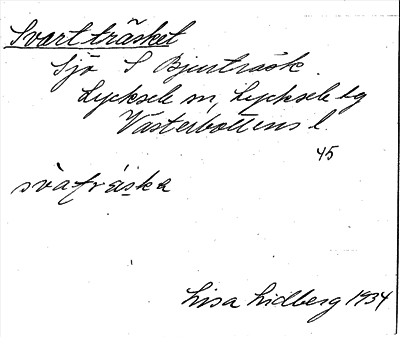 Svartträsket
Sjö S Bjurträsk.
Lycksele sn, Lycksele lg
Västerbottens l.
45
svàfráska
Lisa Lidberg 1934